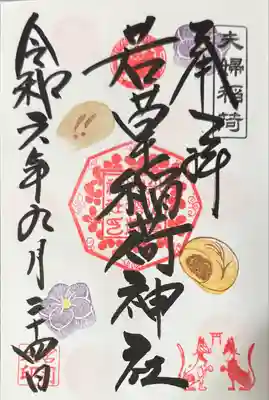 夫婦稲荷
奉拝
若葉稲荷神社
令和六年九月二十四日